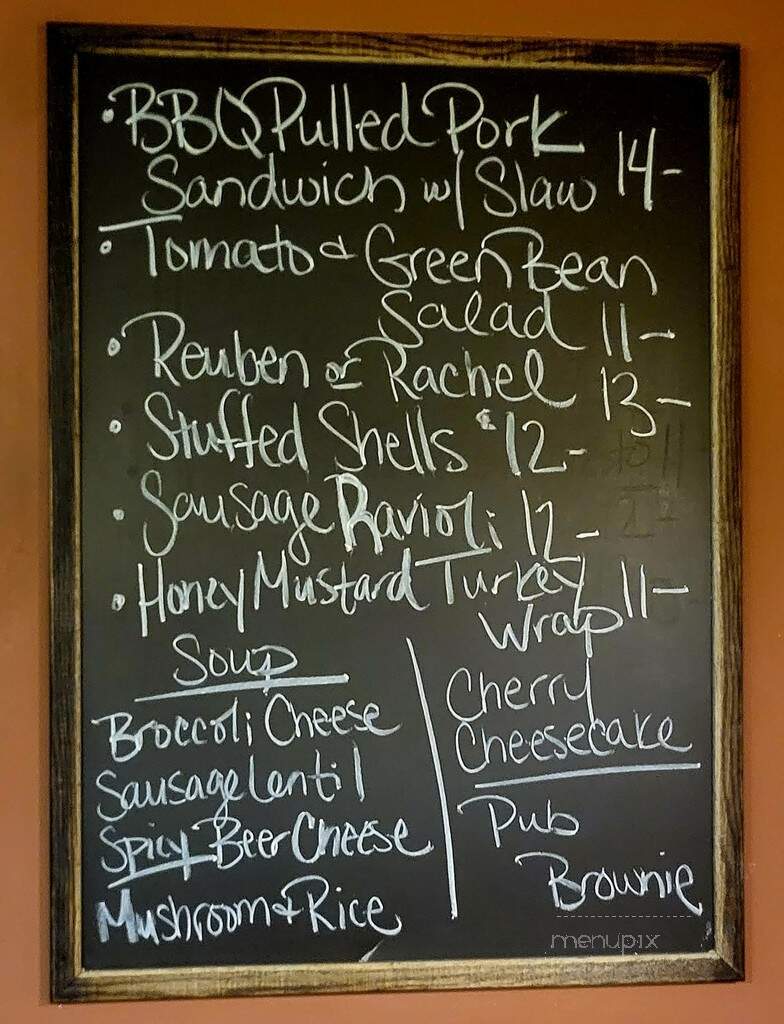 • BBQ Pulled Pork
Sandwich w/ Slaw 14-
• Tomato & Green Bean
Salad 11-
• Reuben or Rachel 13-
• Stuffed Shells 12-
• Sausage Ravioli 12-
• Honey Mustard Turkey 11-
Wrap
Soup
Broccoli Cheese
Sausage Lentil
Spicy Beer Cheese
Mushroom & Rice
Cherry
Cheesecake
Pub
Brownie
menupix